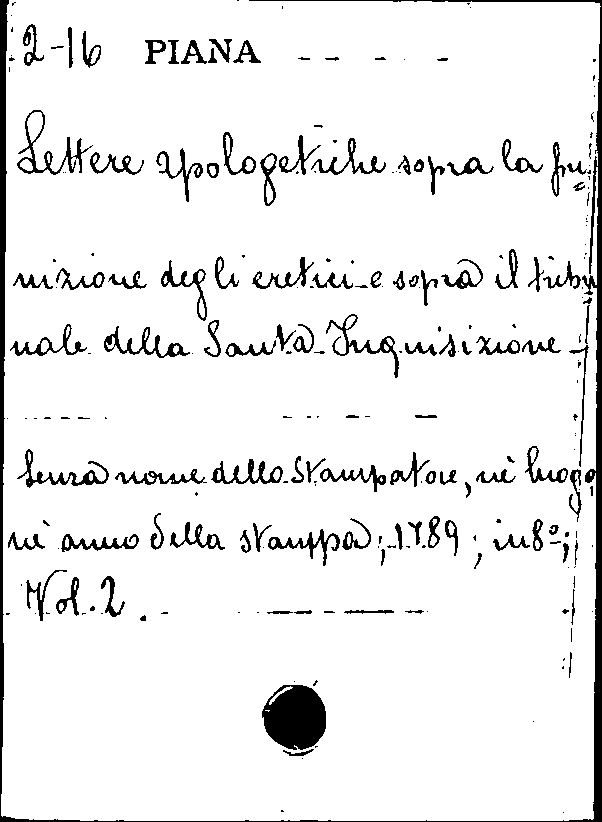 2-16 PIANA
Lettere apologetiche sopra la pu=
nizione degli eretici e sopra il tribu
nale della Santa Inquisizione
Senza nome dello Stampatore, nè luogo,
nè anno della stampa; 1789; in 8º;
Vol. 2.